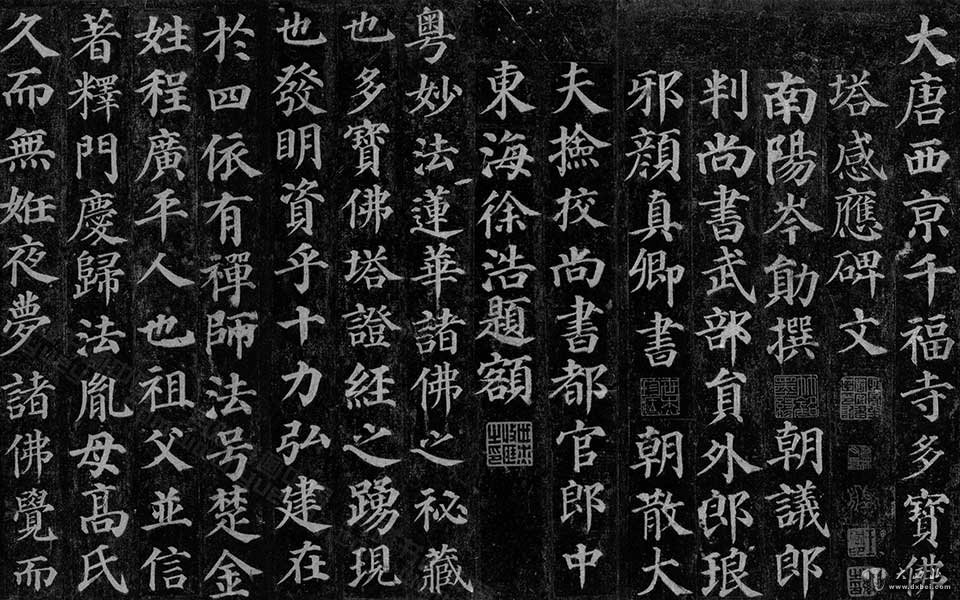 大唐西京千福寺多寳佛
塔感應碑文
南陽岑勛撰 朝議郎
判尚書武部員外郎琅
邪顔真卿書 朝散大
夫撿挍尚書都官郎中
東海徐浩題額
粵妙法蓮華諸佛之秘藏
也多寳佛塔證經之踴現
也發明資乎十力弘建在
於四依有禪師法号楚金
姓程廣平人也祖父並信
著釋門慶歸法胤母髙氏
久而無姙夜夢諸佛覺而
大西北
www.dxbei.com